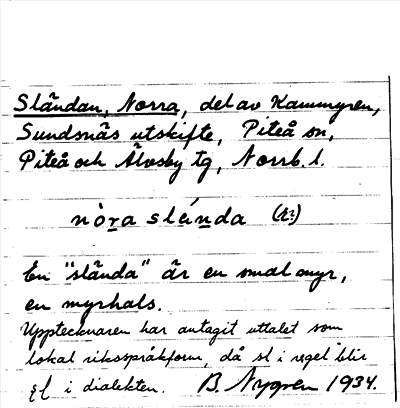 Sländan, Norra, del av Kammyren,
Sundsnäs utskifte, Piteå sn,
Piteå och Älvsby tg, Norrb. l.
nòra slánda (A:)
En "slända" är en smal myr,
en myrhals.
Uppteckaren har antagit uttalet som
lokal riksspråkform, då sl i regel blir
i dialekten. B. Nygren 1934.